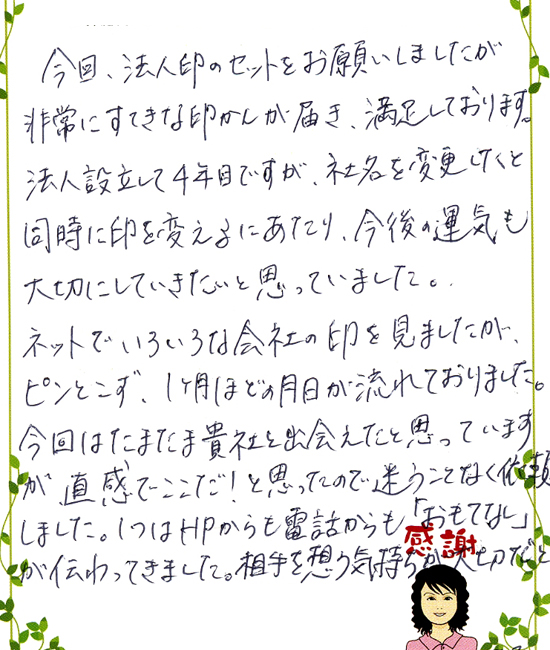 今回、法人印のセットをお願いしましたが
非常にすてきな印かんが届き、満足しております。
法人設立して4年目ですが、社名を変更しくと
同時に印を変えるにあたり、今後の運気も
大切にしていきたいと思っていました。
ネットでいろいろな会社の印を見ましたが、
ピンとこず、1ヶ月ほどの月日が流れておりました。
今回はたまたま貴社と出会えたと思っています
が、直感でここだ!と思ったので迷うことなく依頼
しました。1つはHPからも電話からも「おもてなし」
が伝わってきました。相手を想う気持ちが大切だと
感謝